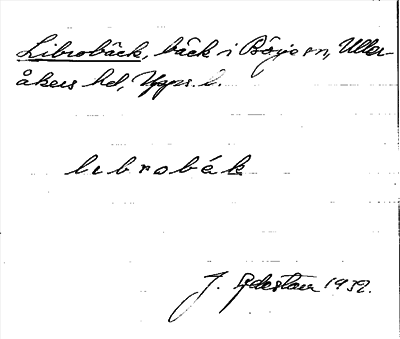 Librobäck, bäck i Börje sn, Uller-
åkers hd, Upps. l.
librobäk
J. Sahlström 1932.